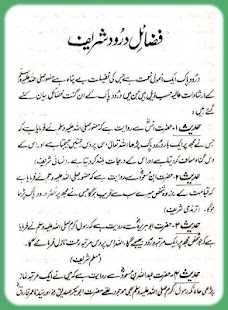 فضائل درود شریف
درود پاک ایک انمول نعمت ہے جس کی فضیلت بے پناہ ہے حضور صلی اللہ علیہ وسلم
کے ارشادات عالیہ میں درود پاک کے ان گنت فضائل بیان کئے
گئے ہیں:
حدیث ۱- حضرت انس سے روایت ہے کہ حضور صلی اللہ علیہ وسلم نے فرمایا ہے کہ
جس نے مجھ پر ایک مرتبہ درود پاک پڑھا اللہ تعالیٰ اس پر دس رحمتیں بھیجتا ہے اور اس کے
دس گناہ معاف کر دیتا ہے اور اس کے دس درجے بلند کر دیتا ہے۔ (نسائی شریف)
حدیث ۲- حضرت ابن مسعود سے روایت ہے کہ حضور صلی اللہ علیہ وسلم نے فرمایا ہے
کہ قیامت کے روز وہ شخص میرے سب سے قریب ہوگا جس نے مجھ پر کثرت سے درود پاک پڑھا
ہوگا۔ (ترمذی شریف)
حدیث ۳- حضرت ابو ہریرہ سے روایت ہے کہ رسول اکرم صلی اللہ علیہ وسلم نے فرمایا
ہے کہ جو شخص مجھ پر ایک مرتبہ درود پڑھتا ہے اللہ اس پر دس مرتبہ رحمت نازل فرماتا ہے۔
(مسلم شریف)
حدیث ۴- حضرت عبداللہ بن مسعود سے روایت ہے کہ میں نے ایک مرتبہ نماز
پڑھی حالانکہ رسول اکرم صلی اللہ علیہ وسلم بھی موجود تھے حضرت ابوبکر صدیق